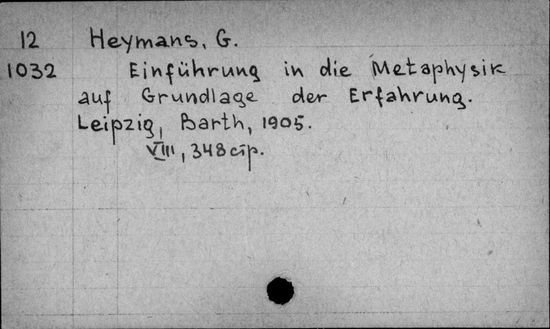 12 Heymans, G.
1032 Einführung in die Metaphysik
auf Grundlage der Erfahrung.
Leipzig, Barth, 1905.
VIII, 348 стр.